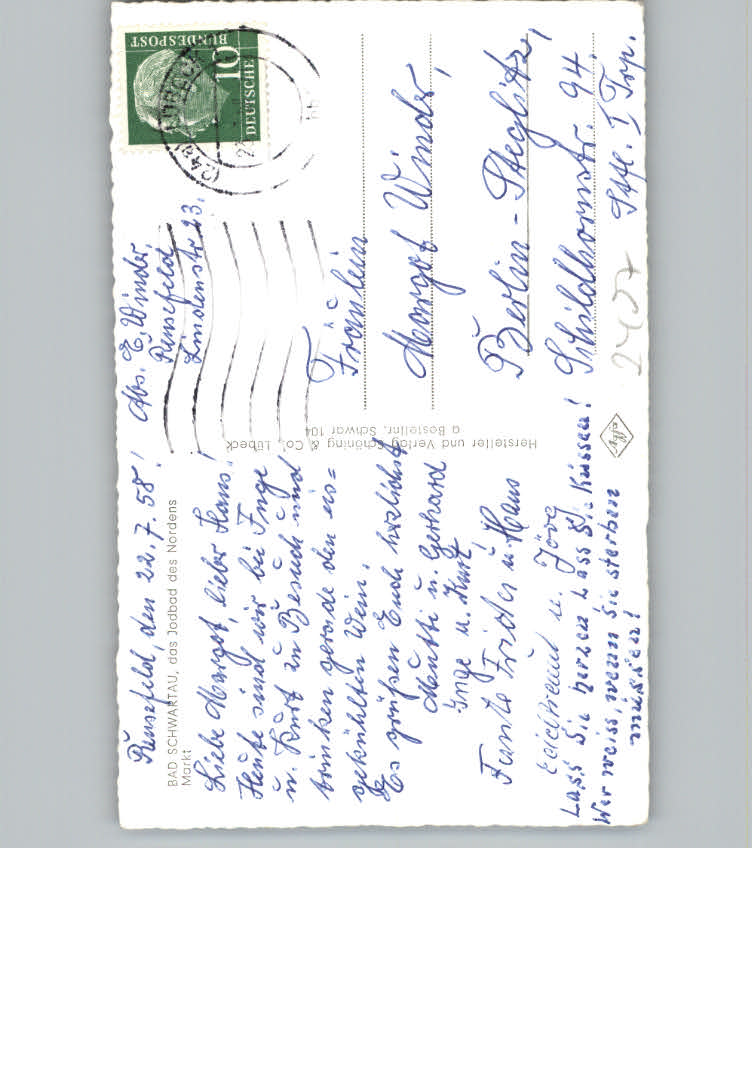 Rensefeld, den 22.7.58!
BAD SCHWARTAU, das Jodbad des Nordens
Markt
Liebe Margot, lieber Hans!
Heute sind wir bei Inge
u. Kurt zu Besuch und
trinken gerade den eis=
gekühlten Wein.
Es grüßen Euch herzlichst
Mutti u. Gerhard
Inge u. Kurt
Tante Frieda u. Hans
Heidtraud u. Jörg
Lass Sie herzen Lass Sie küssen!
Wer weiss, wenn Sie sterben
müssen!
Hersteller und Verlag Schöning & Co., Lübeck
Bestellnr. Schwar 104
agfa
Abs. E. Winder,
Rensefeld
Lindenstr 23.
DEUTSCHE
BUNDESPOST
10
Fräulein
Margot Winder,
Berlin-Steglitz,
Schildhornstr. 94.
Stfl. I Trp.